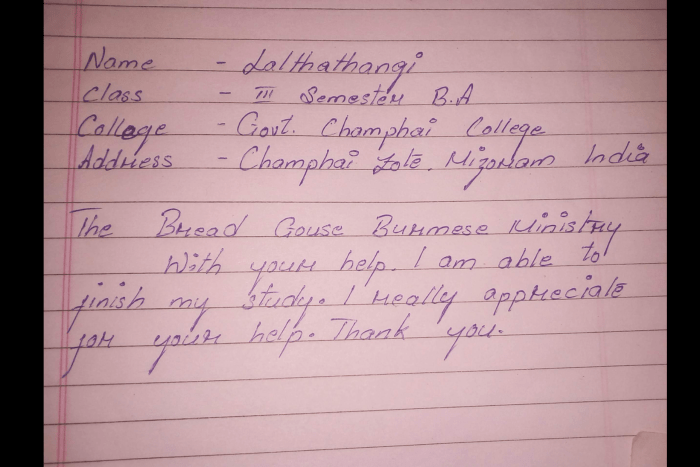 Name - Lalthathangi
Class - III Semester B.A
College - Govt. Champhai College
Address - Champhai Zote. Mizoram India
The Bread Gouse Burmese Ministry
With your help. I am able to
finish my study. I really appreciate
for your help. Thank you.